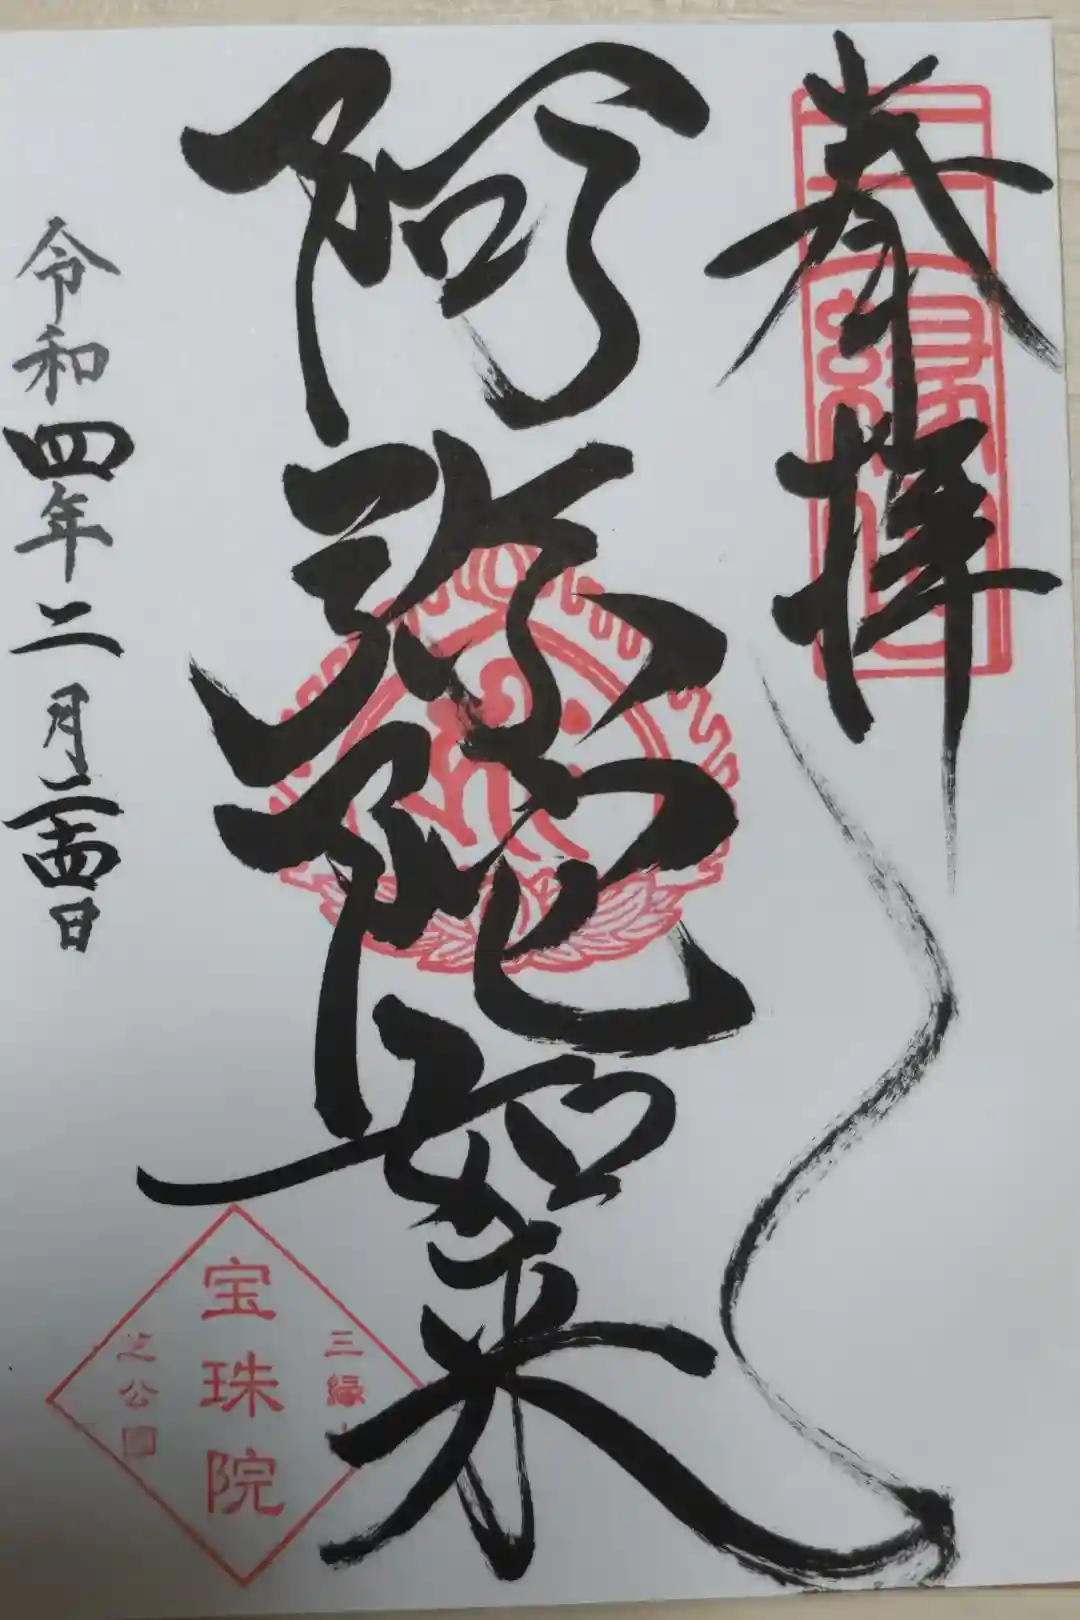 奉拝
三縁山
阿弥陀如来
令和四年二月二十四日
三縁山
宝珠院
芝公園